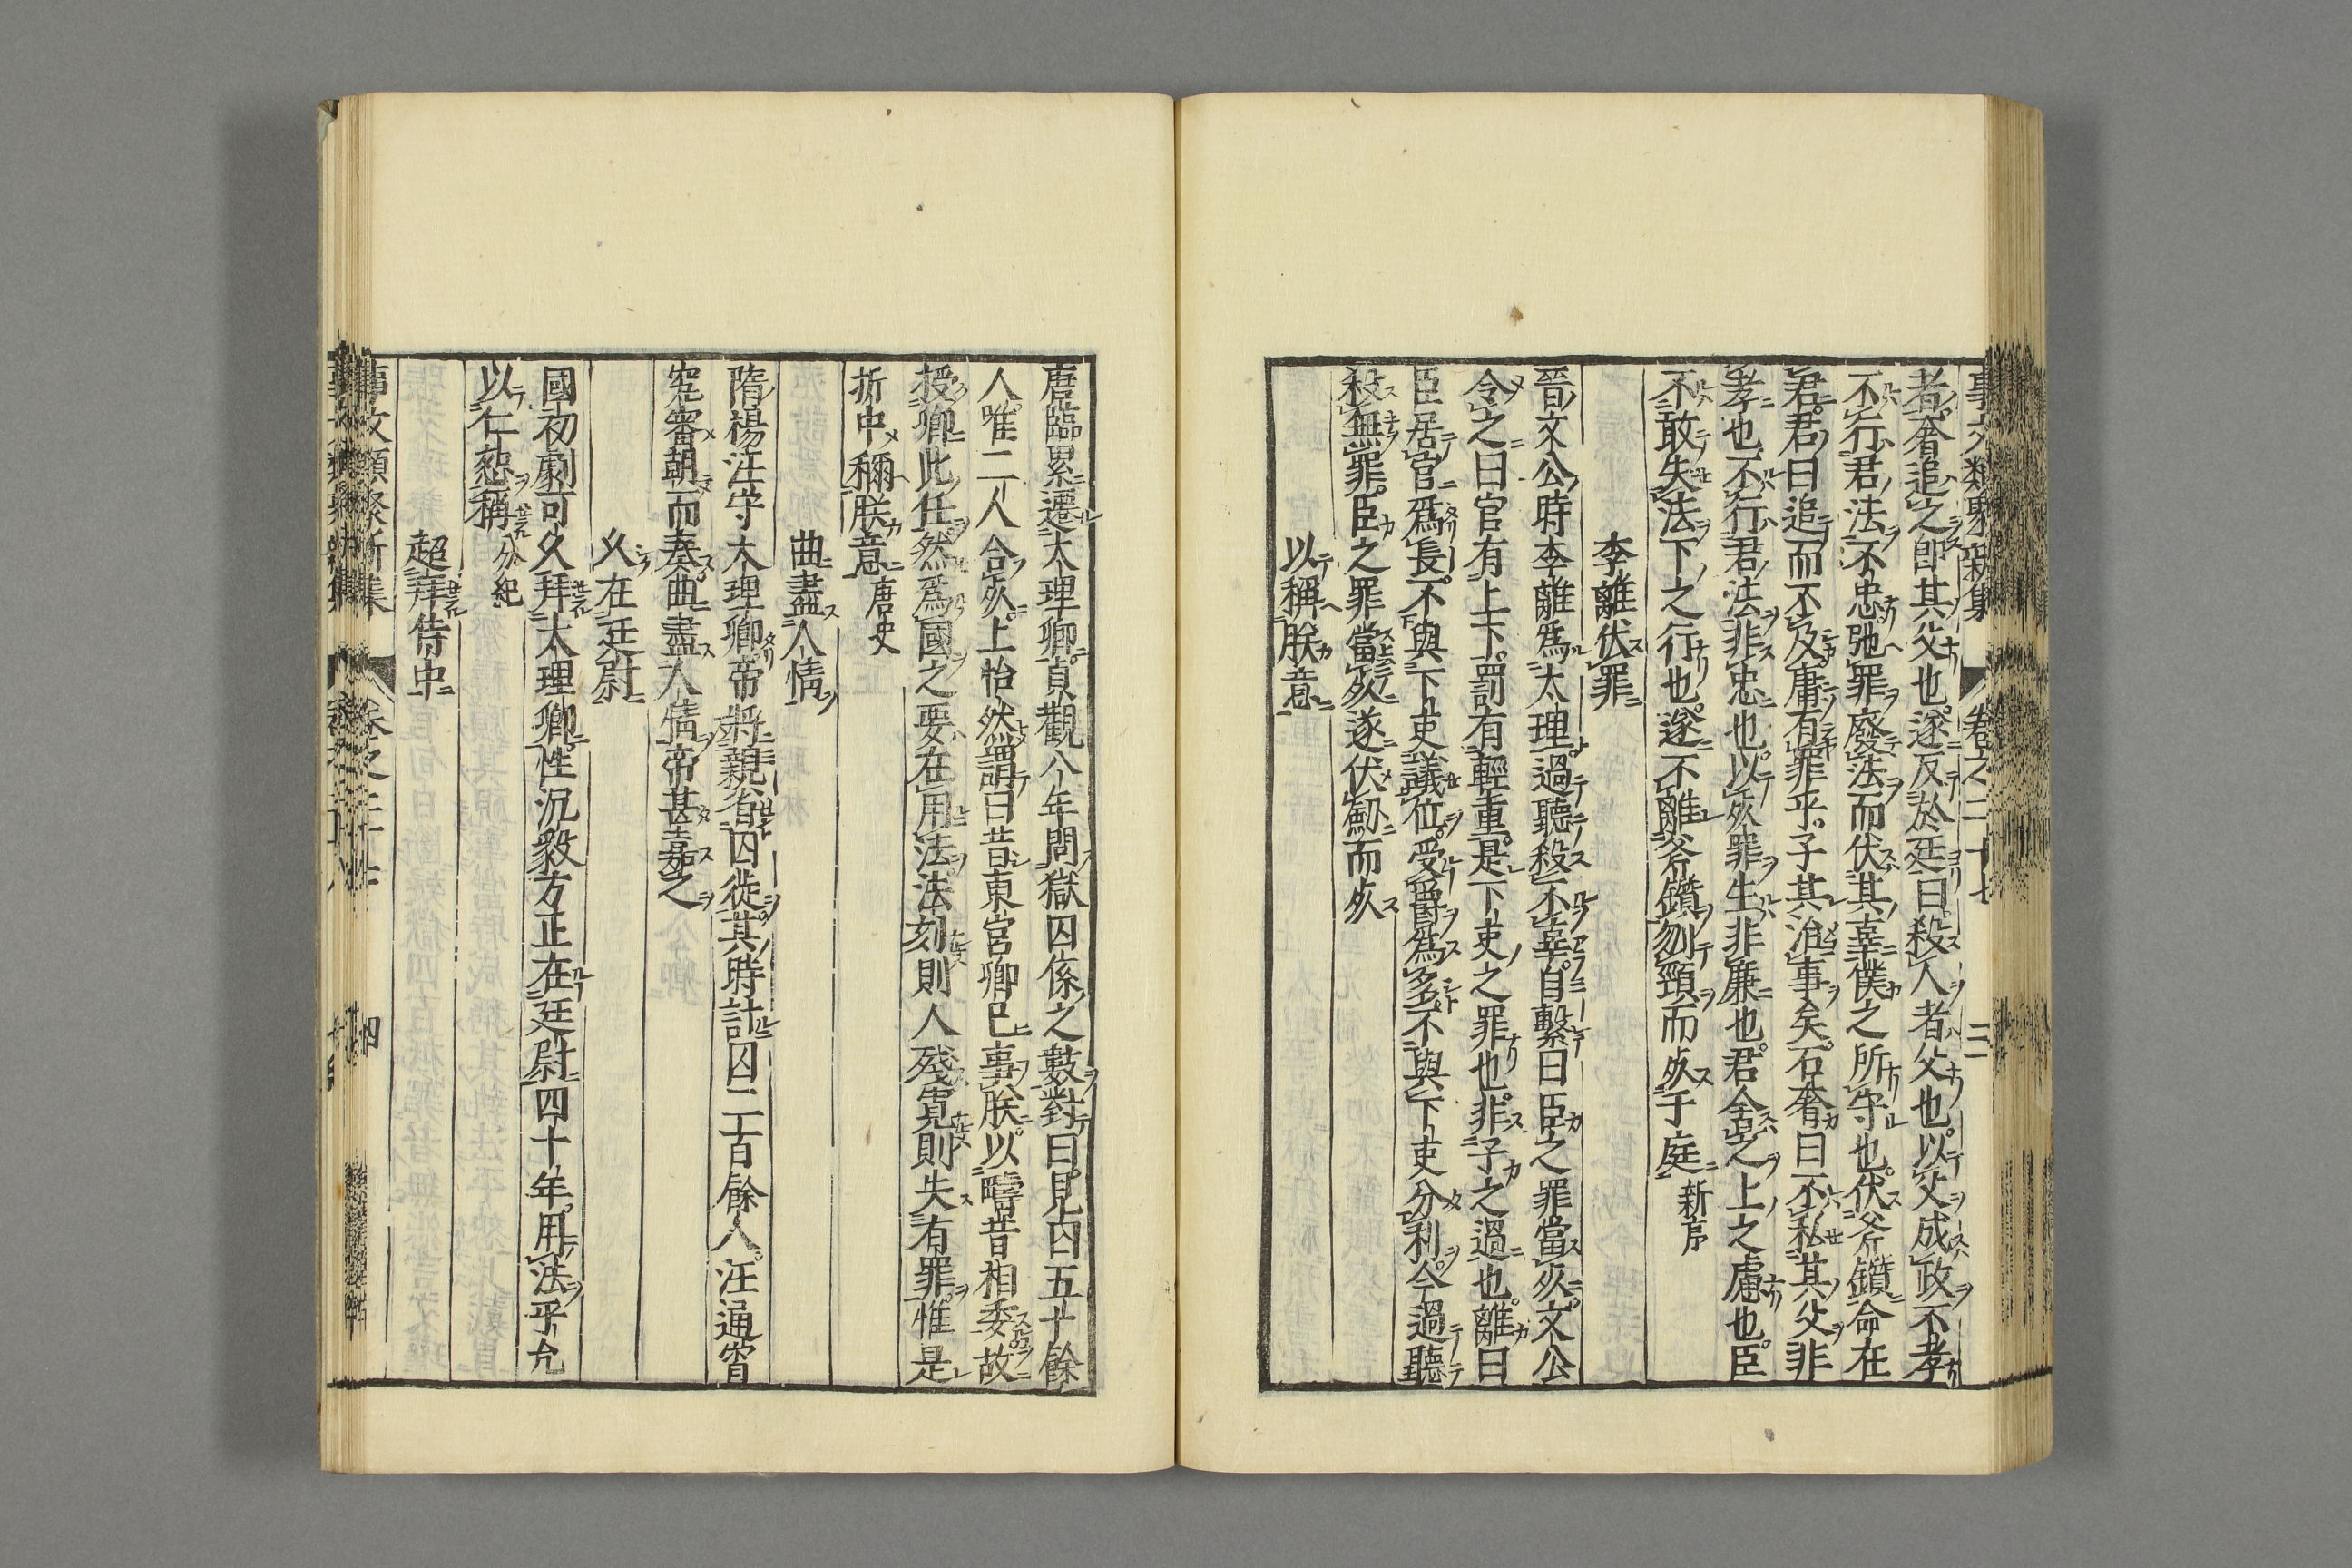 事文類聚新集 卷之二十七 三
者奢追之卽其父也遂反於廷曰殺人者父也以父成政不孝
不行君法不忠弛罪廢法而伏其辜僕之所守也伏斧鑕命在
君君曰追而不及庸有罪乎子其治事矣石奢曰不私其父非
孝也不行君法非忠也以死罪生非廉也君舍之上之慮也臣
不敢失法下之行也遂不離斧鑕刎頸而死于庭新序
李離伏罪
晉文公時李離爲太理過聽殺不辜自繫曰臣之罪當死文公
令之曰官有上下罰有輕重是下吏之罪也非子之過也離曰
臣居官爲長不與下吏議位受爵爲多不與下吏分利今過聽
殺無罪臣之罪當死遂伏劒而死
以稱朕意
唐臨累遷太理卿貞觀八年問獄囚係之數對曰見囚五十餘
人唯二人合死上怡然謂曰昔東宮卿已事朕以疇昔相委故
授卿此任然爲國之要在用法法刻則人殘寬則失有罪惟是
折中稱朕意唐史
曲盡人情
隋楊汪守太理卿帝將親省囚徒其時計囚二百餘人汪通宵
究審朝而奏曲盡人情帝甚嘉之
久在廷尉
國初劇可久拜太理卿性沉毅方正在廷尉四十年用法平允
以仁恕稱分紀
超拜侍中
事文類聚新集 四